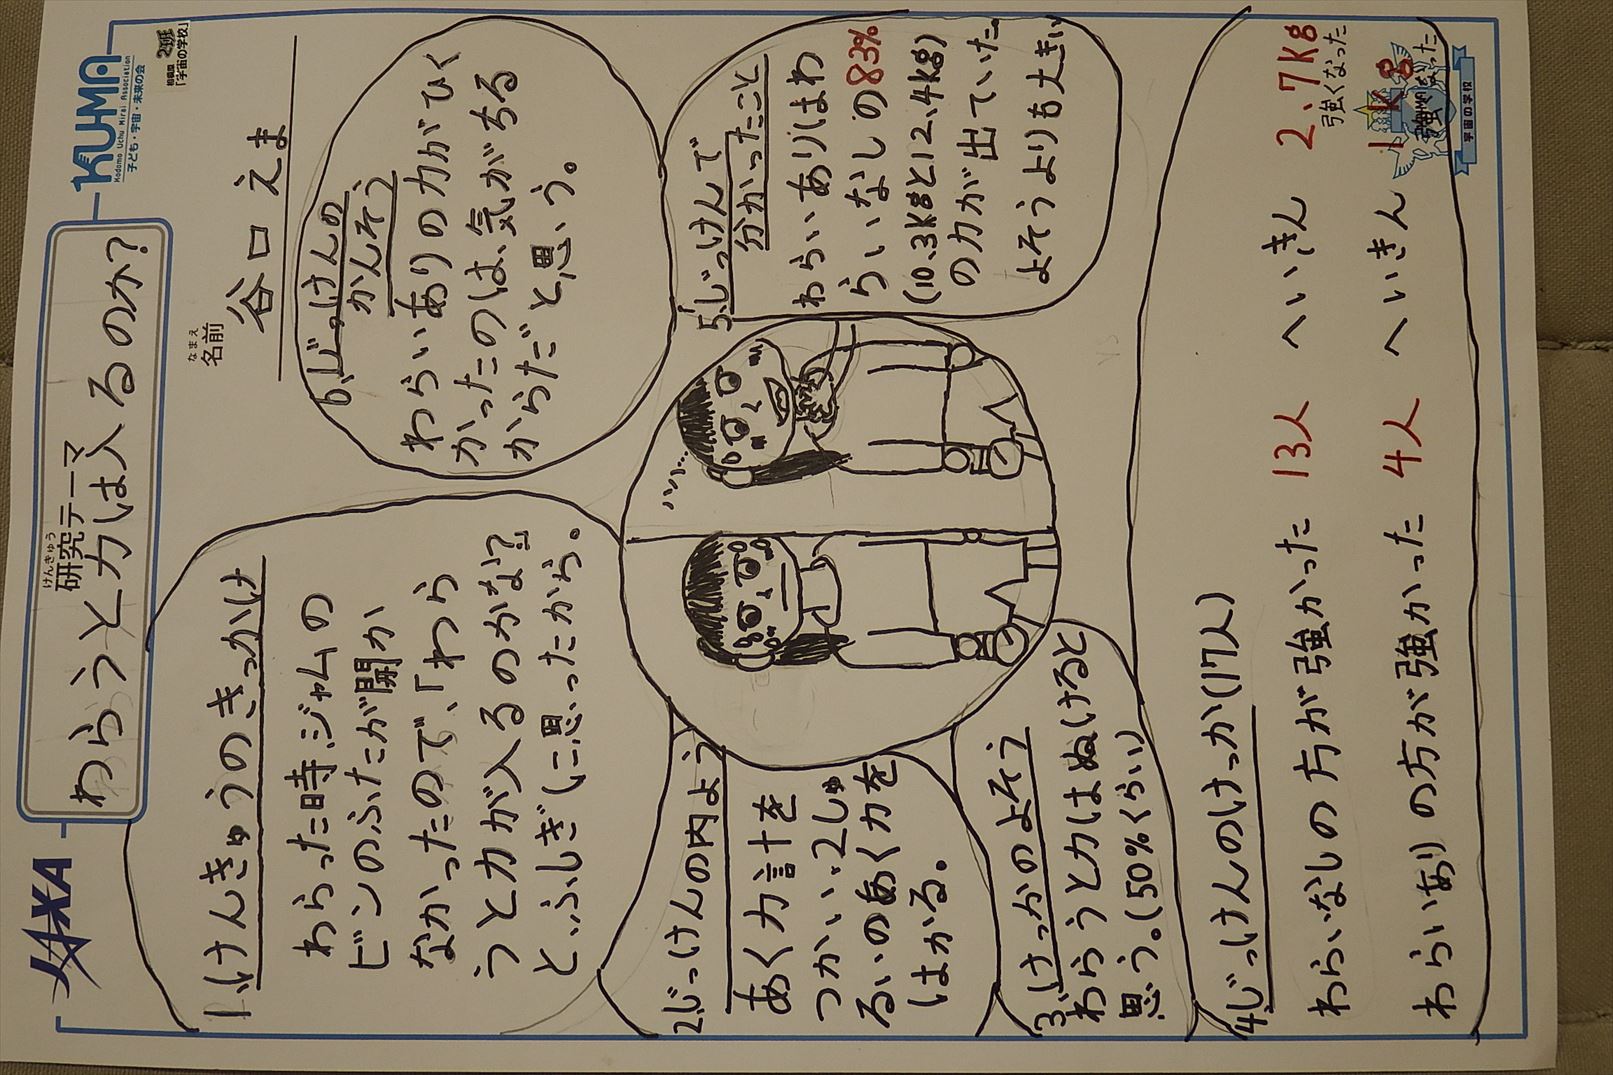 JAXA
けんきゅう
研究テーマ
わらうと力は入るのか?
KUMA
Kodomo Uchu Mirai Association
子ども・宇宙・未来の会
2班
「宇宙の学校」
なまえ
名前
谷口えま
1、けんきゅうのきっかけ
わらった時、ジャムの
ビンのふたが開か
なかったので、「わら
うと力が入るのかな?」
と、ふしぎに思ったから。
2、じっけんの内よう
あく力計を
つかい、2しゅ
るいのあく力を
はかる。
3、けっかのよそう
わらうと力はぬけると
思う。(50%くらい)
4、じっけんのけっか(17人)
わらいなしの方が強かった 13人 へいきん 2、7Kg
強くなった
わらいありの方が強かった 4人 へいきん 1Kg
強くなった
ハハハ…
5、じっけんで
分かったこと
わらいありはわ
らいなしの83%
(10.3Kgと12、4Kg)
の力が出ていた。
よそうよりも大きい
6、じっけんの
かんそう
わらいありの力がひく
かったのは、気がちる
からだと思う。
宇宙の学校